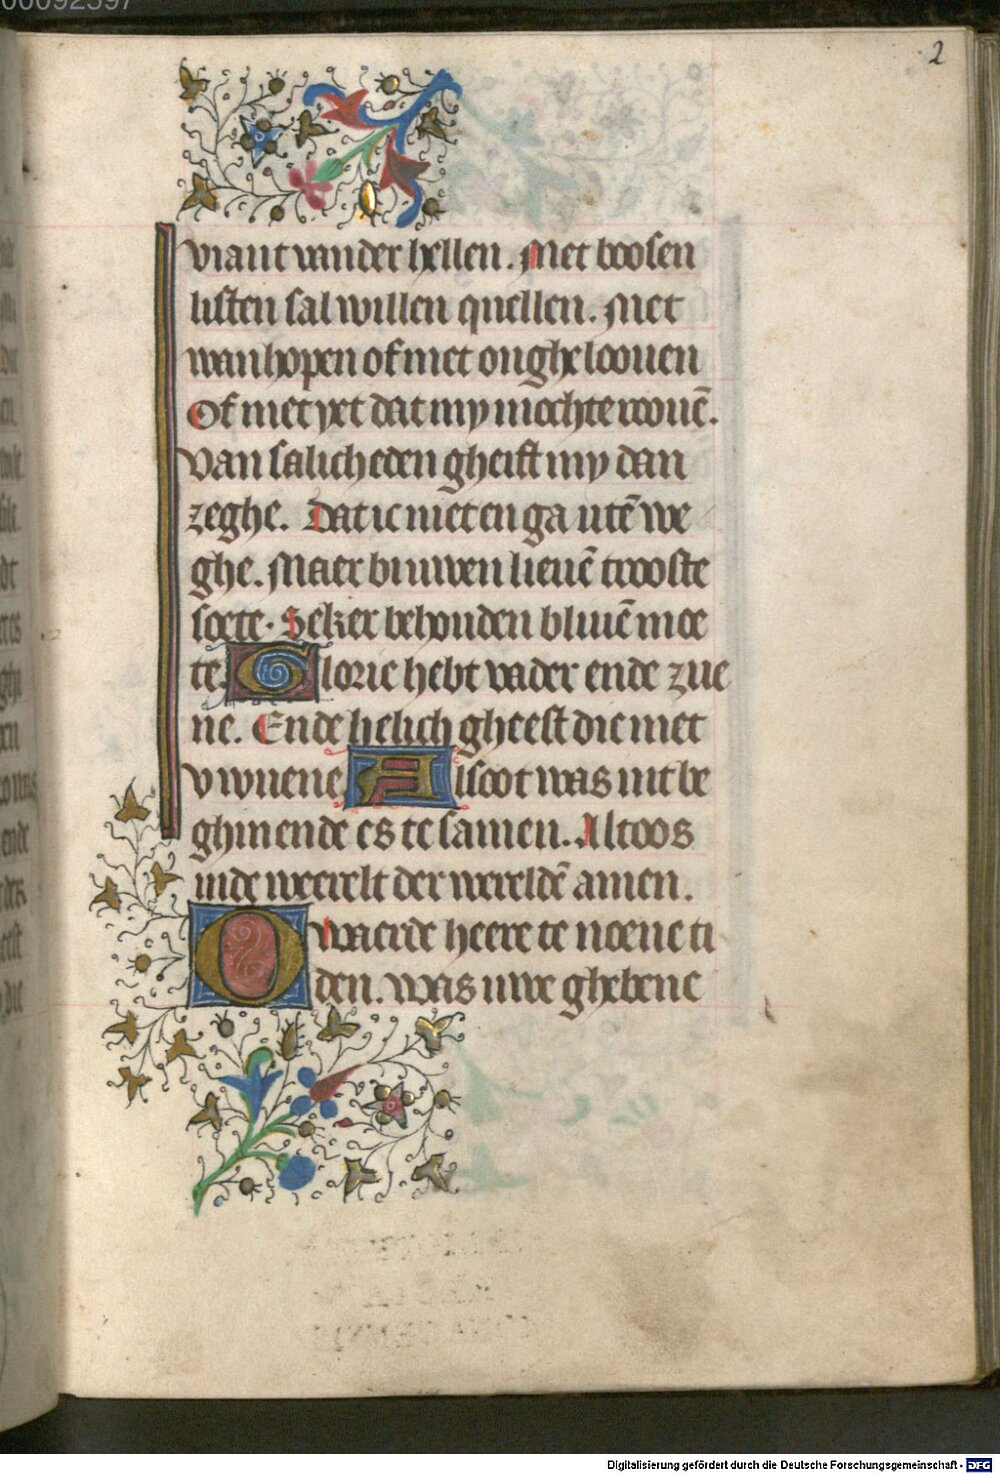 2
viant vander hellen. Met boosen
listen sal willen quellen. Met
wanhopen of met ongheloouen
Of met yet dat my mochte roouē.
Van salicheden gheift my dan
zeghe. Dat ic niet en ga utē we
ghe. Maer binwen lieuē trooste
soete. Seker behouden bliuē moe
te. Glorie hebt vader ende zue
ne. Ende helich gheest die met
v iwnene Alsoot was int be
ghin ende es te samen. Altoos
inde weerelt der wereldē amen.
O waerde heere te noene ti
den. was uwe ghebene
Digitalisierung gefördert durch die Deutsche Forschungsgemeinschaft - DFG